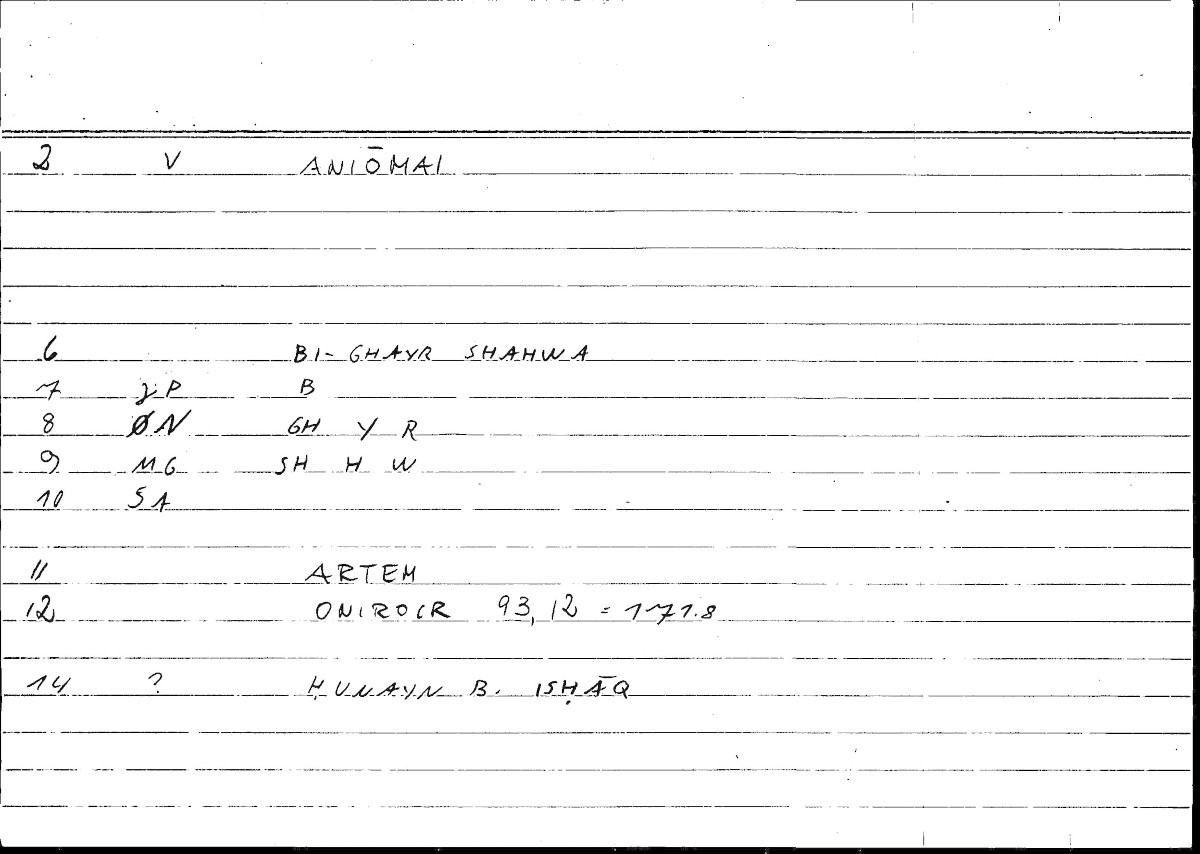 2 V ANIŌMAI
6 BI-GHAYR SHAHWA
7 γP B
8 ØN GH Y R
9 MG SH H W
10 SA
11 ARTEM
12 ONIROCR 93,12 = 171.8
14 ? ḤUNAYN B. ISḤĀQ